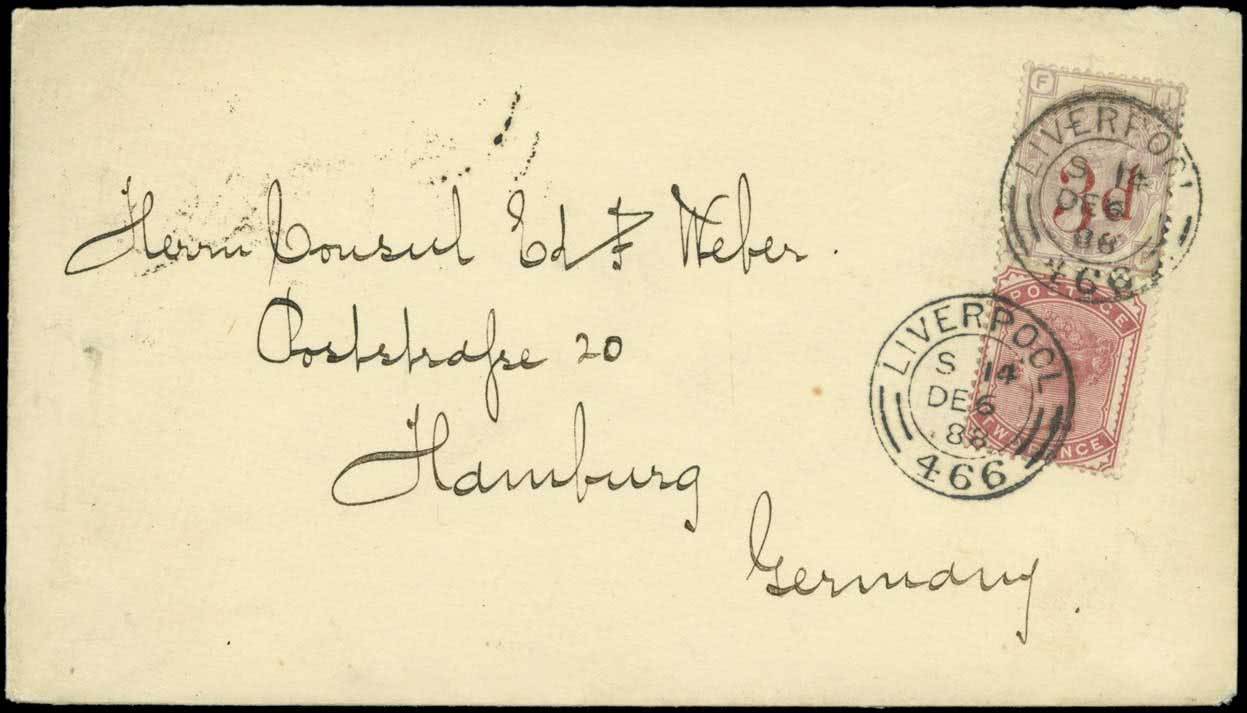 Herrn Consul Ed F Weber.
Poststraße 20
Hamburg
Germany.
F
LIVERPOOL
S 14
DE 6
88
466
3d
POSTAGE
TWO PENCE
LIVERPOOL
S 14
DE 6
88
466